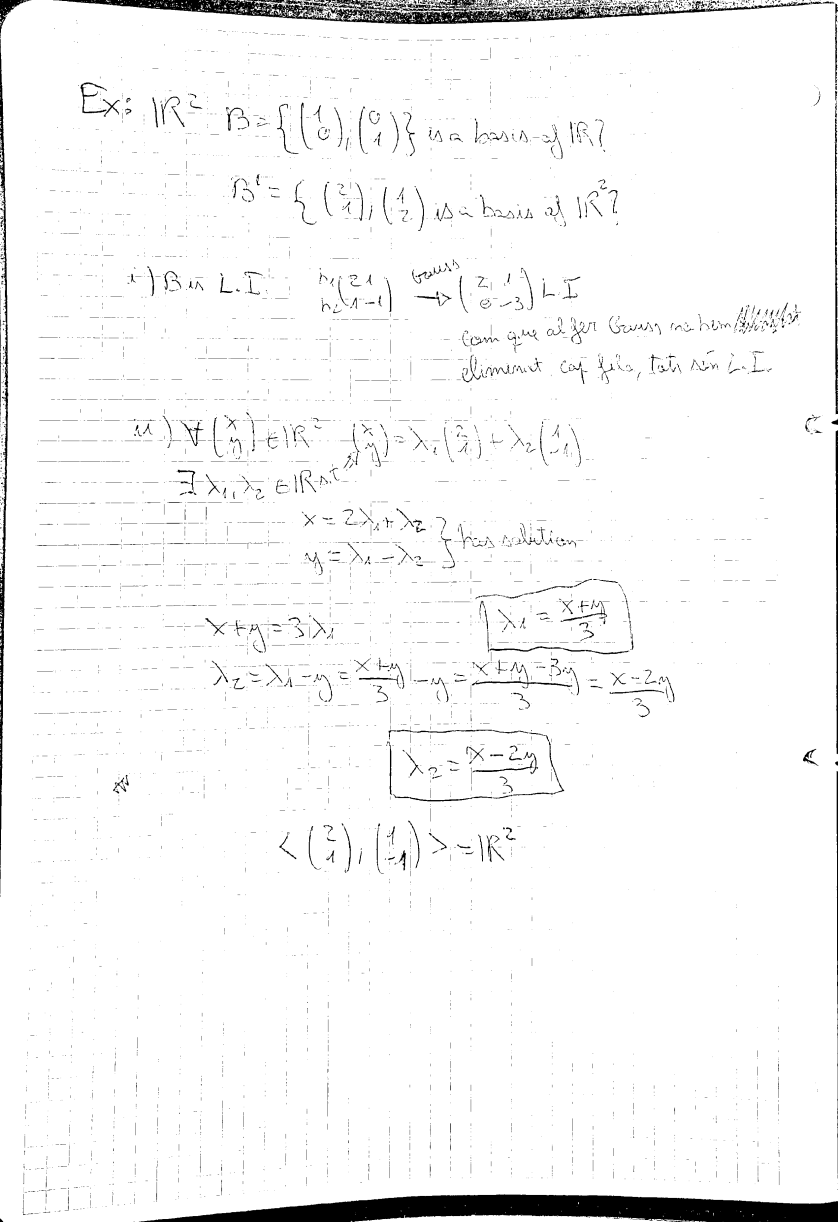 Ex: ℝ² B = {(1 0), (0 1)} is a basis of ℝ?
B' = { (2 1), (1 2) is a basis of ℝ²?
i) B is L.I. (2 1 / 1 -1) Gauss → (2 1 / 0 -3) L I
Com que al fer Gauss no hem
eliminat cap fila, tots són L.I.
ii) ∀ (x y) ∈ ℝ² (x y) = λ₁ (2 1) + λ₂ (1 -1)
∃ λ₁, λ₂ ∈ ℝ s.t
x = 2λ₁ + λ₂
y = λ₁ - λ₂ } has solution
x + y = 3λ₁ λ₁ = (x+y)/3
λ₂ = λ₁ - y = (x+y)/3 - y = (x+y-3y)/3 = (x-2y)/3
λ₂ = (x-2y)/3
< (2 1), (1 -1) > = ℝ²